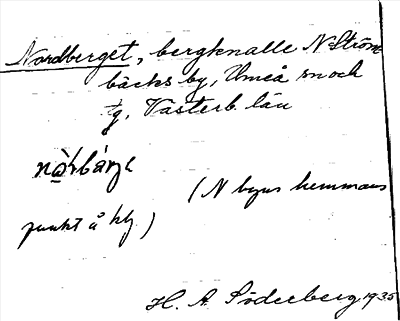 Nordberget, bergknalle N Ström
bäcks by, Umeå sn och
tg, Västerb. län
(N byns hemmans
punkt å
H. A. Söderberg 1935